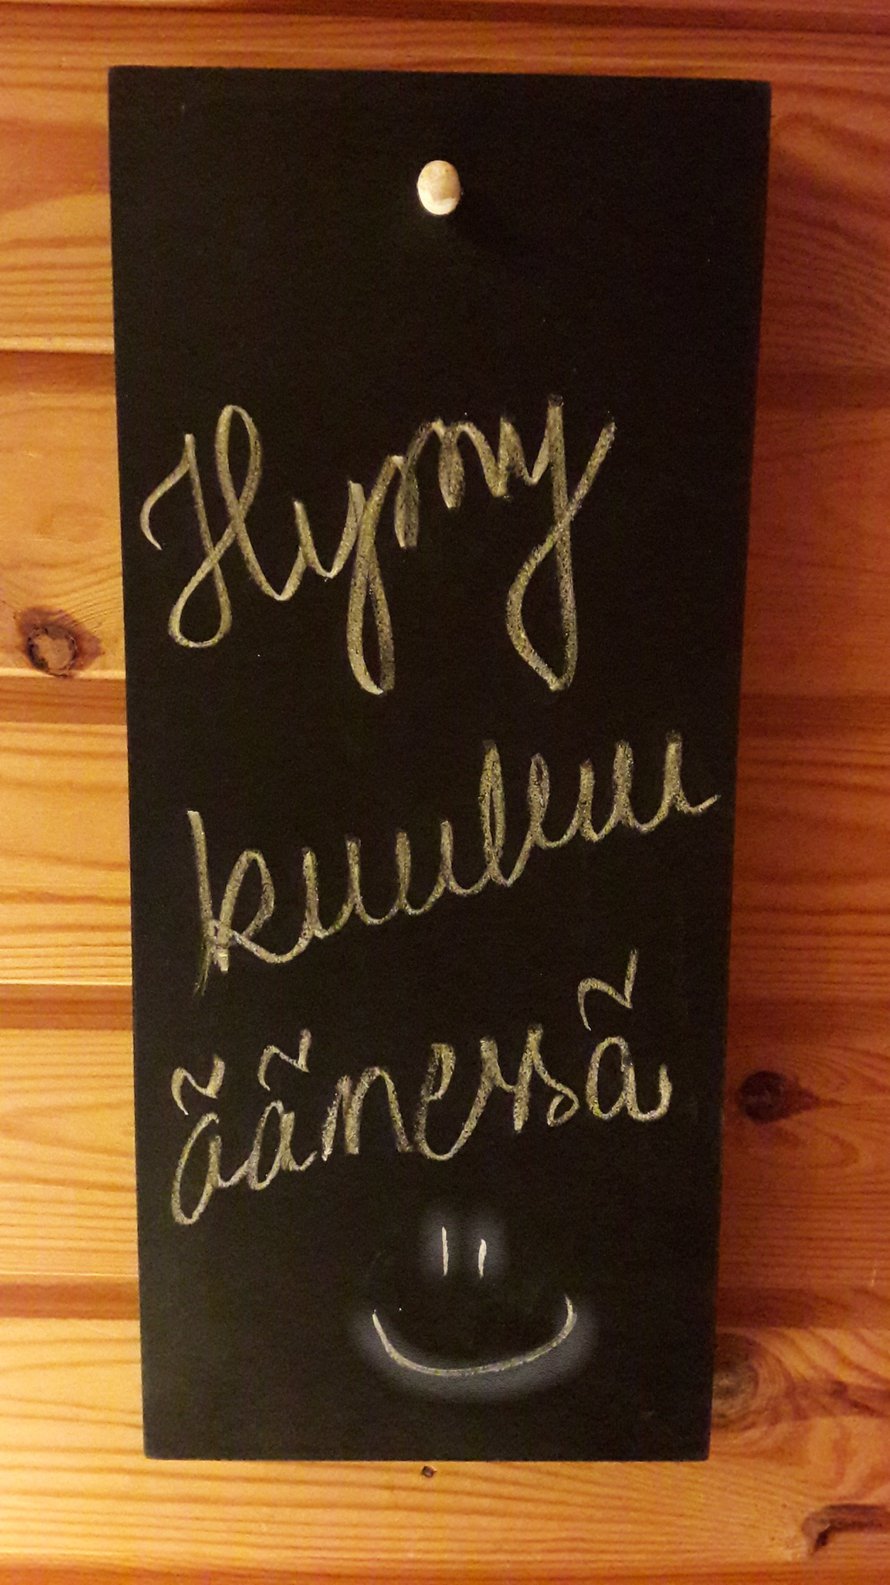 Hymy
kuuluu
äänessä